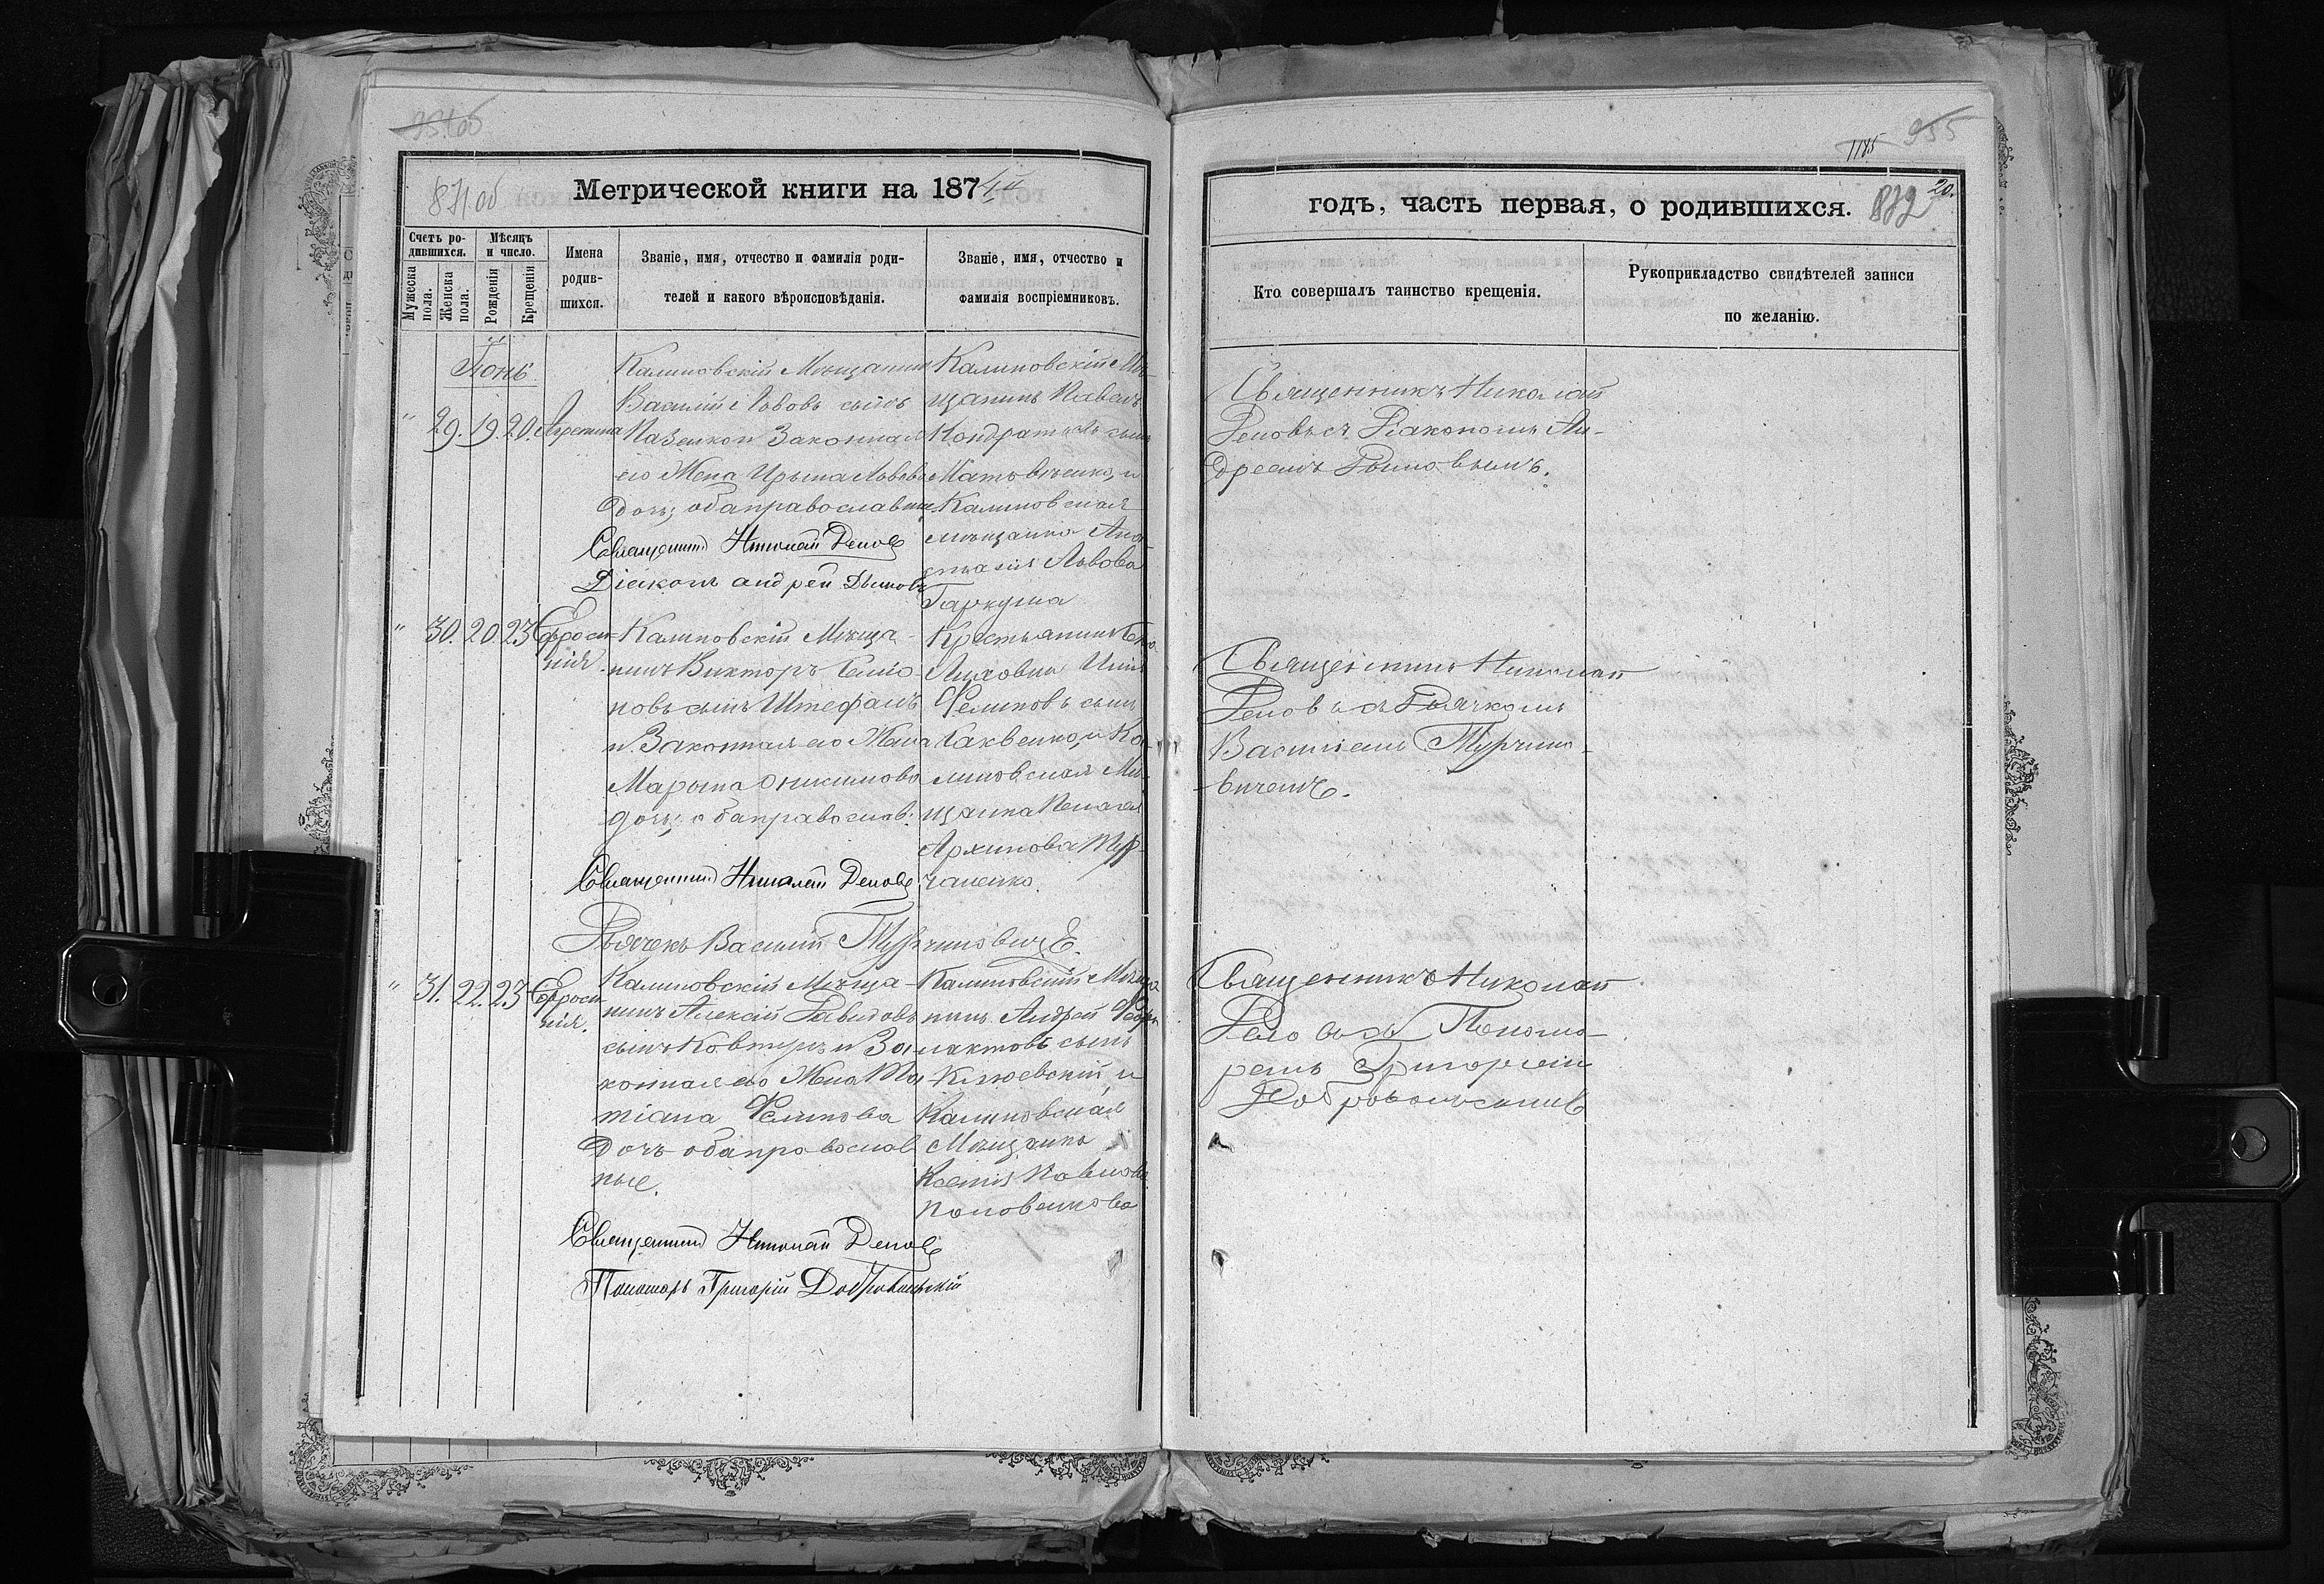 871 об
Метрической книги на 1874й
Счетъ ро-
дившихся.
Мужеска
пола.
Женска
пола.
Мѣсяцъ
и число.
Рожденія
Крещенія
Имена
родив-
шихся.
Званіе, имя, отчество и фамилія роди-
телей и какого вѣроисповѣданія.
Званіе, имя, отчество и
фамилія воспріемниковъ.
Іюнь
" 29. 19. 20. Агрепина
Калиновскій Мѣщанинъ
Василій Львовъ сынъ
Законная
его Жена Ирына Львова
дочь; оба православные
Священникъ Николай Деповъ
Діаконъ андрей Дымовъ
Калиновскій Мѣ-
щанинъ Павелъ
Кондратьевъ сынъ
и
Калиновская
мѣщанка Ана-
стасія Львова
Гаркуша
" 30. 20. 23 Ефроси-
нія.
Калиновскій Мѣща-
нинъ Викторъ
сынъ Штефанъ
и Законная его Жена
Марына Онисимова
дочь; оба православ:
Священникъ Николай Деповъ
Дьячекъ Василій Турчиновичъ
Крестьянинъ
Филиповъ сынъ
и Ка-
линовская Мѣ-
щанка Пелагея
Архипова Тур-
чаненко.
" 31. 22. 23 Ефроси-
нія.
Калиновскій Мѣща-
нинъ Алексій Давидовъ
сынъ Ковтунъ и За-
конная его Жена Та-
тіана Филипова
дочь оба православ
ные.
Священникъ Николай Деповъ
Пономарь Григорій Добровольскій
Калиновскій Мѣща
нинъ Андрей Феофи-
лактовъ сынъ
Клюевскій, и
Калиновская
Мѣщанка
Ксенія Павлова
955
1185
годъ, часть первая, о родившихся.
872
20.
Кто совершалъ таинство крещенія.
Рукоприкладство свидѣтелей записи
по желанію.
Священникъ Николай
Деповъ съ Діакономъ Ан-
дреемъ Дымовымъ.
Священникъ Николай
Деповъ съ Дьячкомъ
Василіемъ Турчино-
вичемъ.
Священникъ Николай
Деповъ съ Понома-
ремъ Григоріемъ
Добровольскимъ